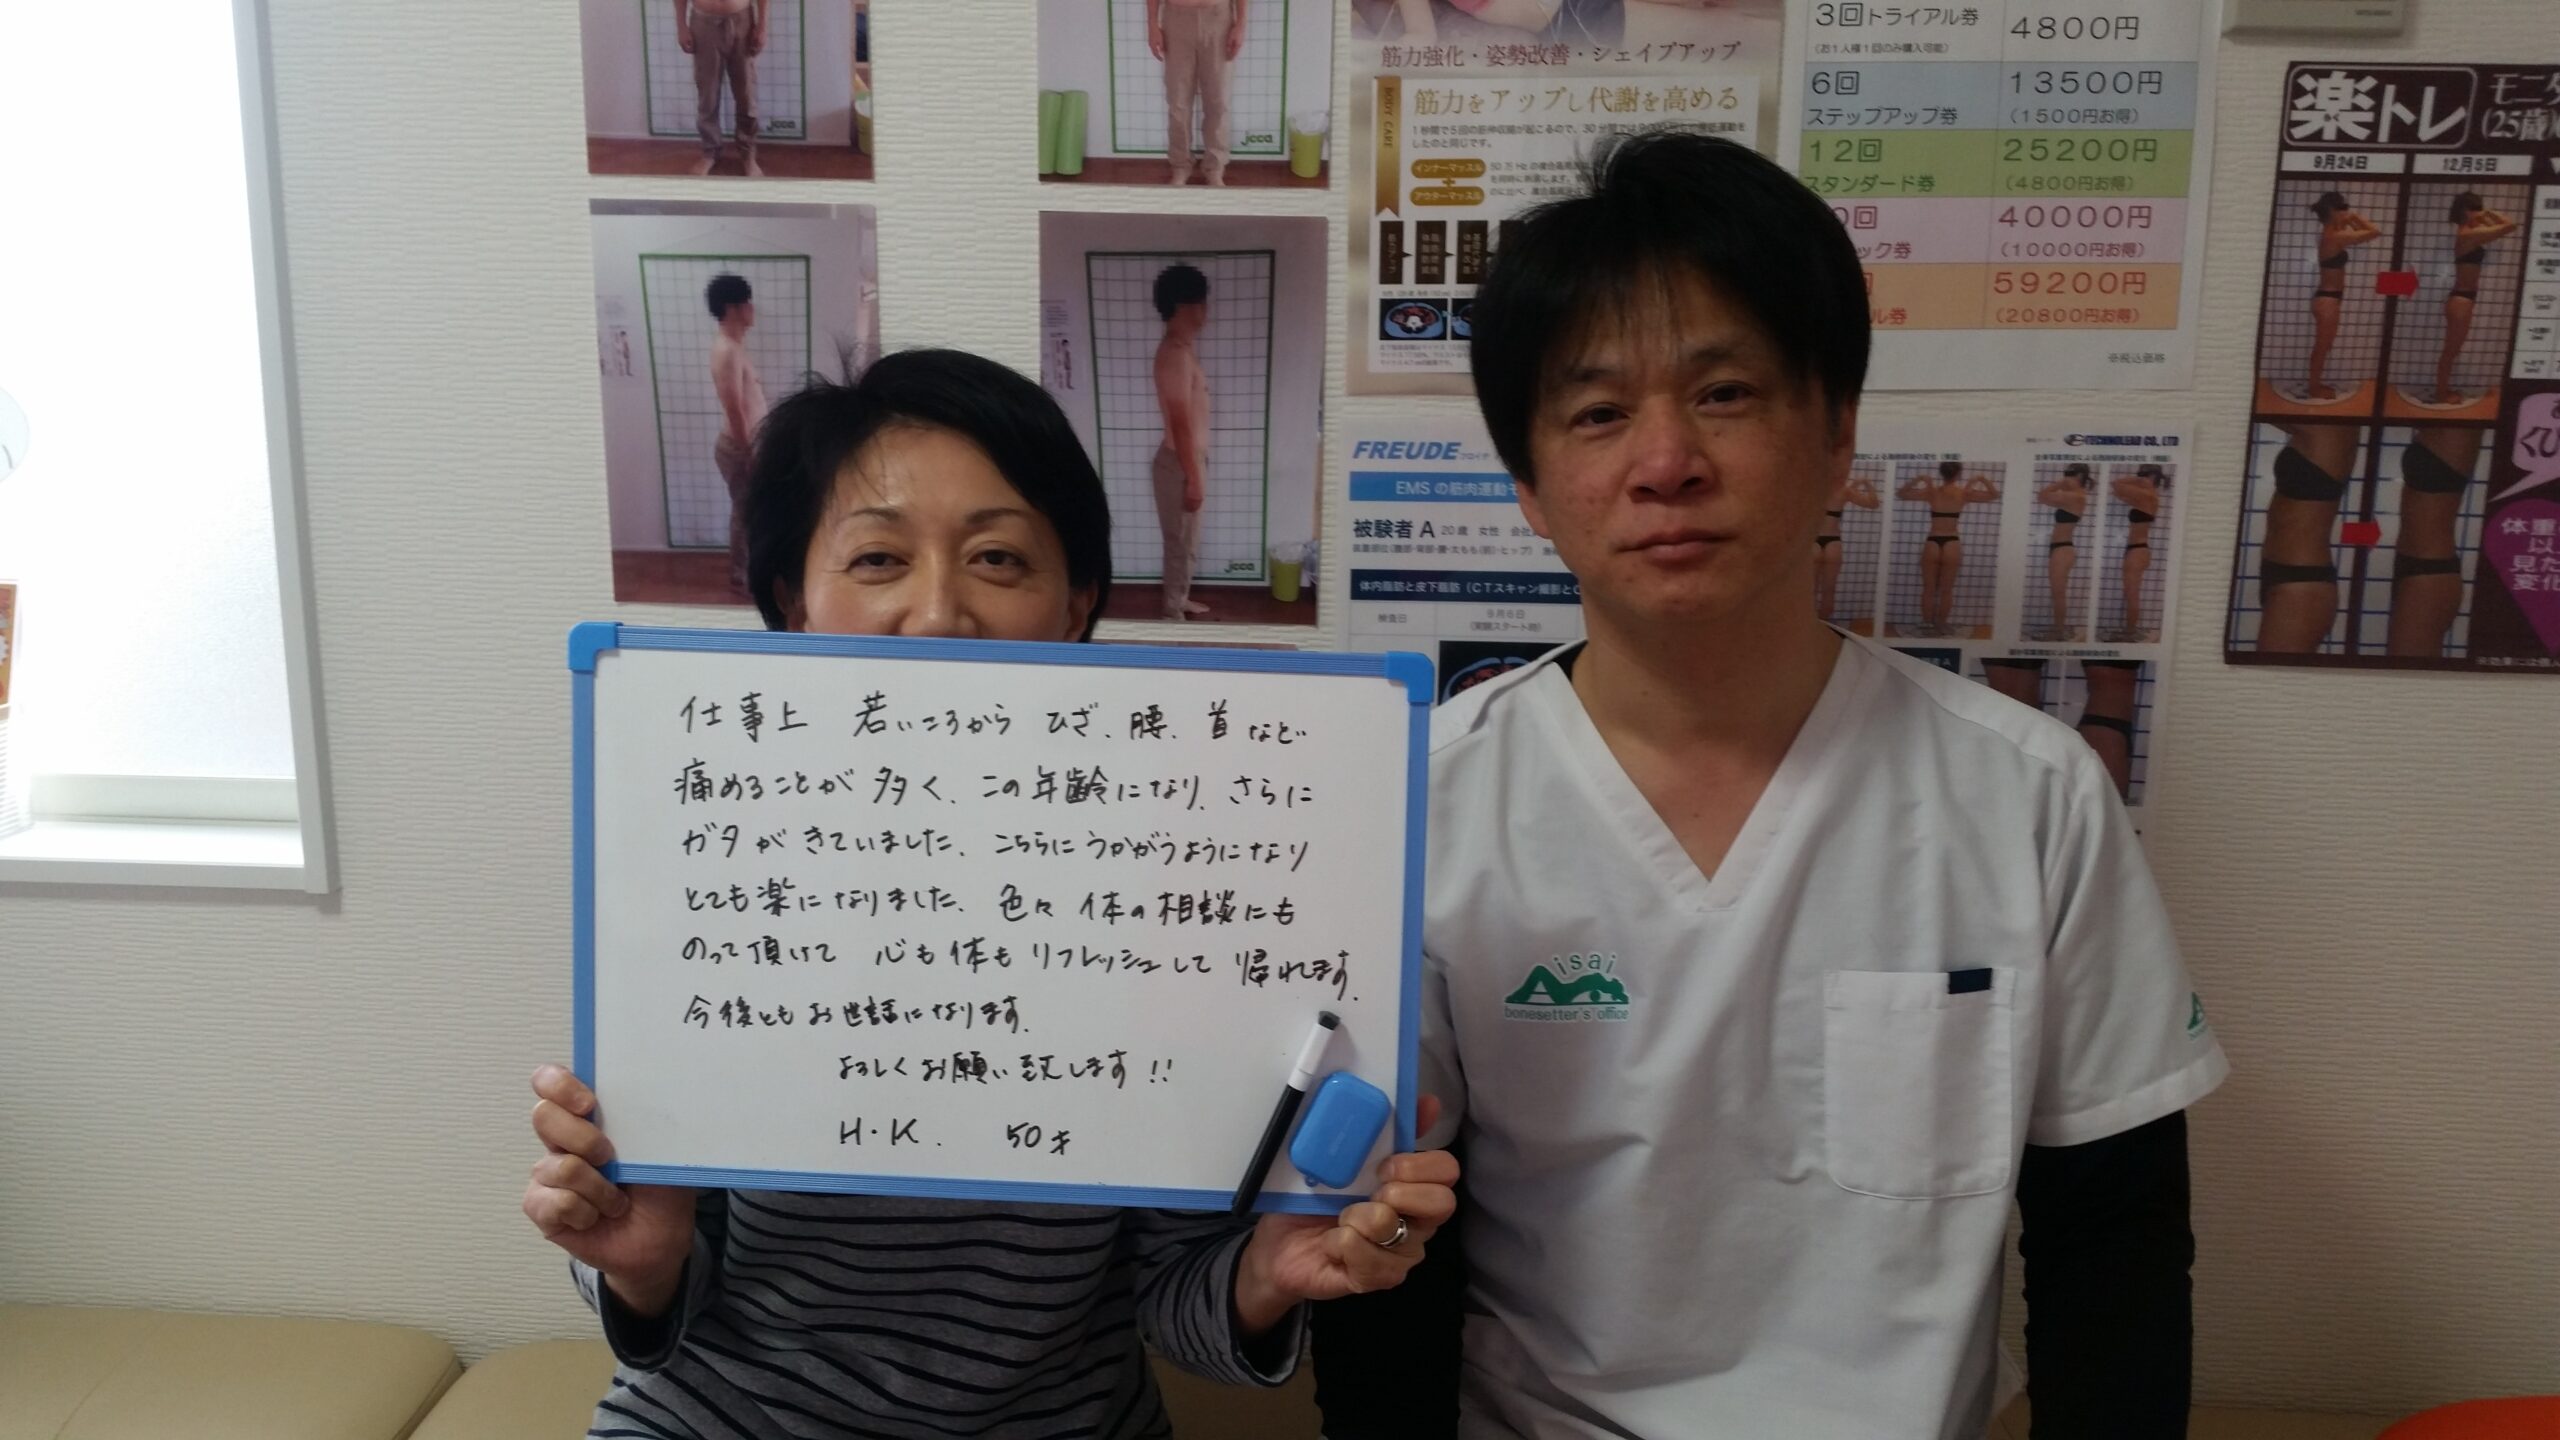 仕事上 若いころから ひざ、腰、首など
痛めることが 多く、この年齢になり、さらに
ガタが きていました、こちらにうかがうようになり
とても楽になりました、色々 体の相談にも
のって頂けて 心も体もリフレッシュして 帰れます、
今後ともお世話になります、
よろしくお願い致します!!
H・K. 50才
jcca
jcca
jcca
筋力強化・姿勢改善・シェイプアップ
BODY CARE
筋力をアップし代謝を高める
したのと同じです。
インナーマッスル
+
アウターマッスル
3回トライアル券 4800円
(お1人様1回のみ購入可能)
6回 13500円
ステップアップ券 (1500円お得)
12回 25200円
スタンダード券 (4800円お得)
0回 40000円
ック券 (10000円お得)
59200円
ル券 (20800円お得)
※税込価格
FREUDE フロイデ
TECHNOLEAD CO., LTD
EMSの筋肉運動モ
被験者A 20歳 女性 会社
体内脂肪と皮下脂肪(CTスキャン撮影と
検査日 9月6日
(実験スタート時)
楽トレ
モニタ
(25歳)
9月24日 12月5日
くび
体重
以
見た
変化
Aisai
bonesetter's office